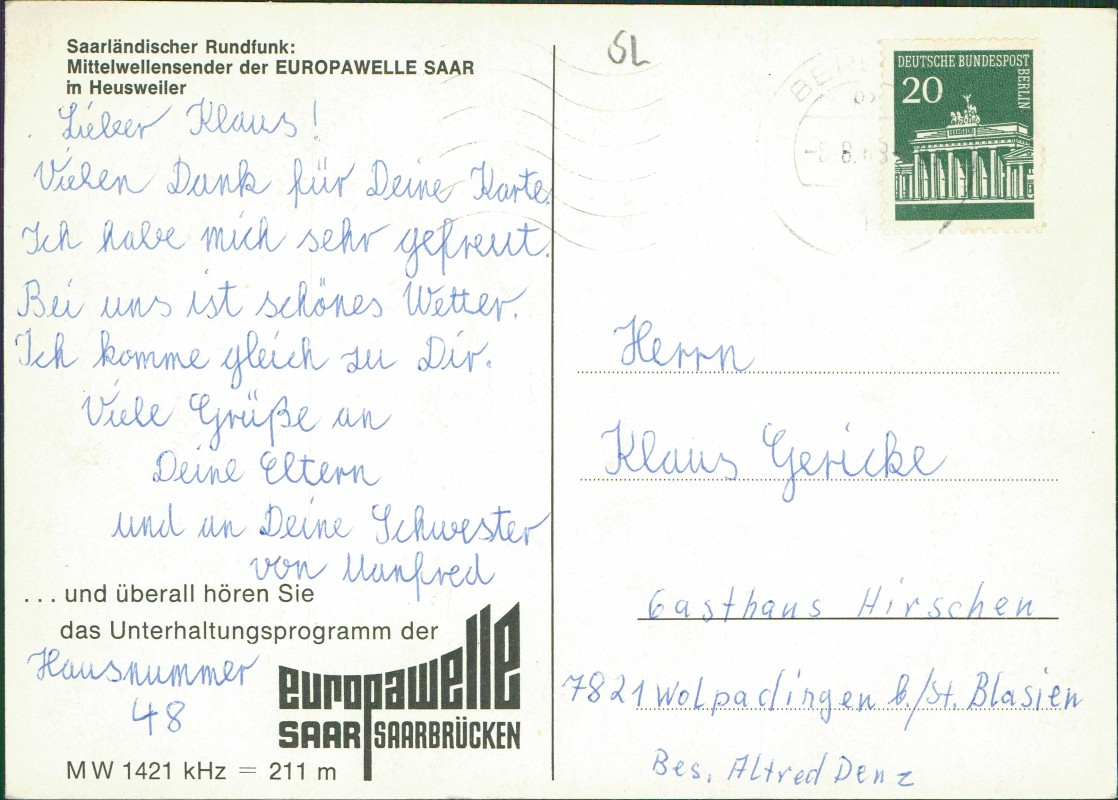 Saarländischer Rundfunk:
Mittelwellensender der EUROPAWELLE SAAR
in Heusweiler
Lieber Klaus!
Vielen Dank für Deine Karte.
Ich habe mich sehr gefreut.
Bei uns ist schönes Wetter.
Ich komme gleich zu Dir.
Viele Grüße an
Deine Eltern
und an Deine Schwester
von Manfred
... und überall hören Sie
das Unterhaltungsprogramm der
Hausnummer
48
europawelle
SAAR SAARBRÜCKEN
MW 1421 kHz = 211 m
DEUTSCHE BUNDESPOST
BERLIN
20
Herrn
Klaus Gericke
Gasthaus Hirschen
7821 Wolpadingen b./St. Blasien
Bes. Alfred Denz